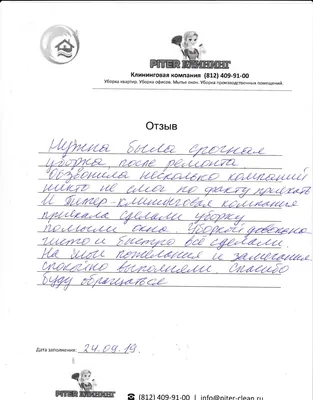 PITER КЛИНИНГ
Клининговая компания (812) 409-91-00
Уборка квартир. Уборка офисов. Мытье окон. Уборка производственных помещений.
Отзыв
Нужна была срочная
уборка после ремонта.
Обзвонила несколько компаний
никто не смог по факту приехать
И Питер-клининговая компания
приехала сделали уборку
помыли окна. Уборкой довольна
чисто и быстро всё сделали.
На мои пожелания и замечания
спокойно выполняли. Спасибо
буду обращаться
Дата заполнения: 24.09.19.
PITER КЛИНИНГ
(812) 409-91-00 | info@piter-clean.ru